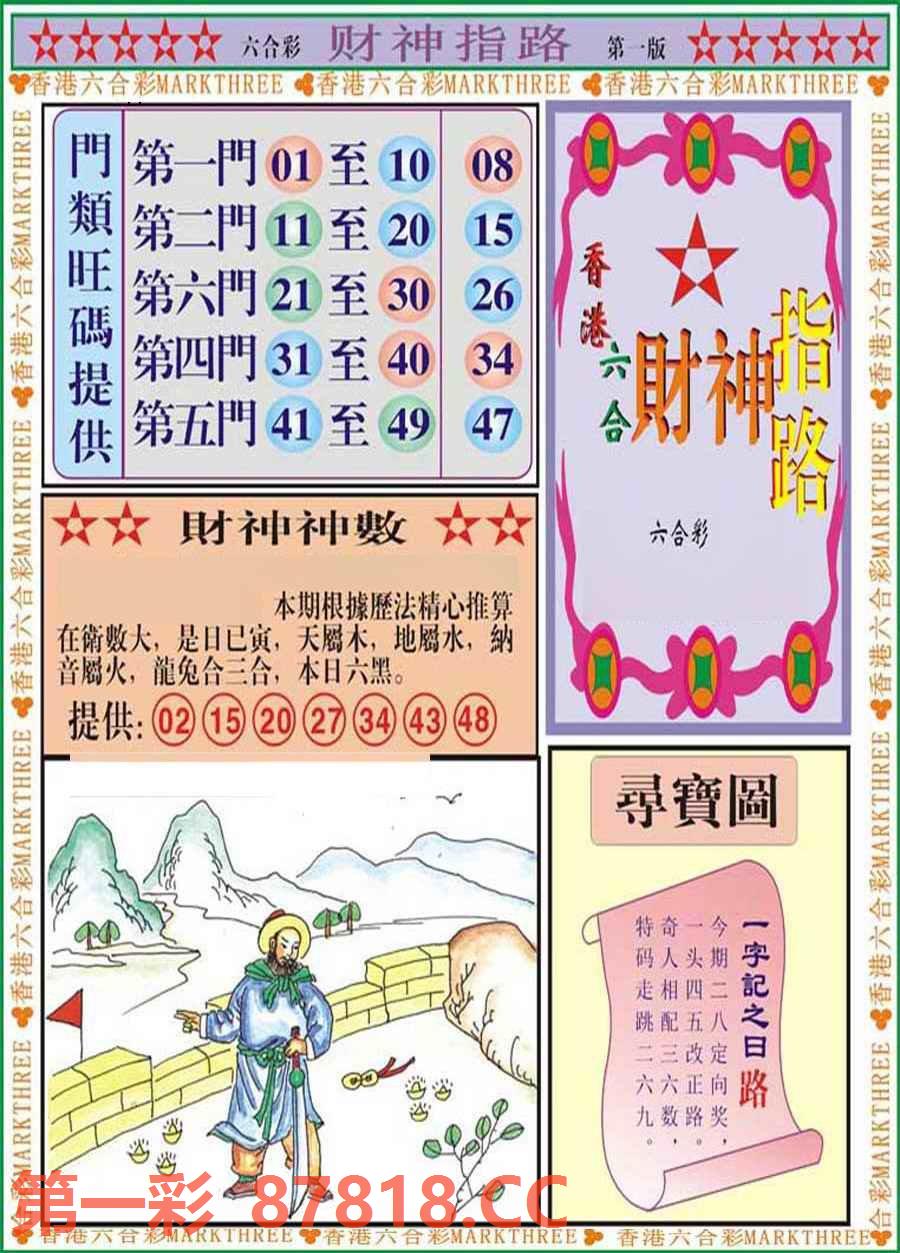 六合彩 财神指路 第一版
香港六合彩MARKTHREE 香港六合彩MARKTHREE 香港六合彩MARKTHREE
門類旺碼提供
第一門 01 至 10 08
第二門 11 至 20 15
第六門 21 至 30 26
第四門 31 至 40 34
第五門 41 至 49 47
香港六合
財神
指路
六合彩
財神神數
本期根據歷法精心推算
在術數大，是日已寅，天屬木，地屬水，納
音屬火，龍兔合三合，本日六黑。
提供: 02 15 20 27 34 43 48
尋寶圖
一字記之日 路
今期二八定向奖，
一头四五改正路。
奇人相配三六数，
特码走跳二六九。
第一彩 87818.CC
香港六合彩MARKTHREE 香港六合彩MARKTHREE 香港六合彩MARKTHREE
香港六合彩MARKTHREE
香港六合彩MARKTHREE
香港六合彩MARKTHREE
香港六合彩MARKTHREE
香港六合彩MARKTHREE
香港六合彩MARKTHREE